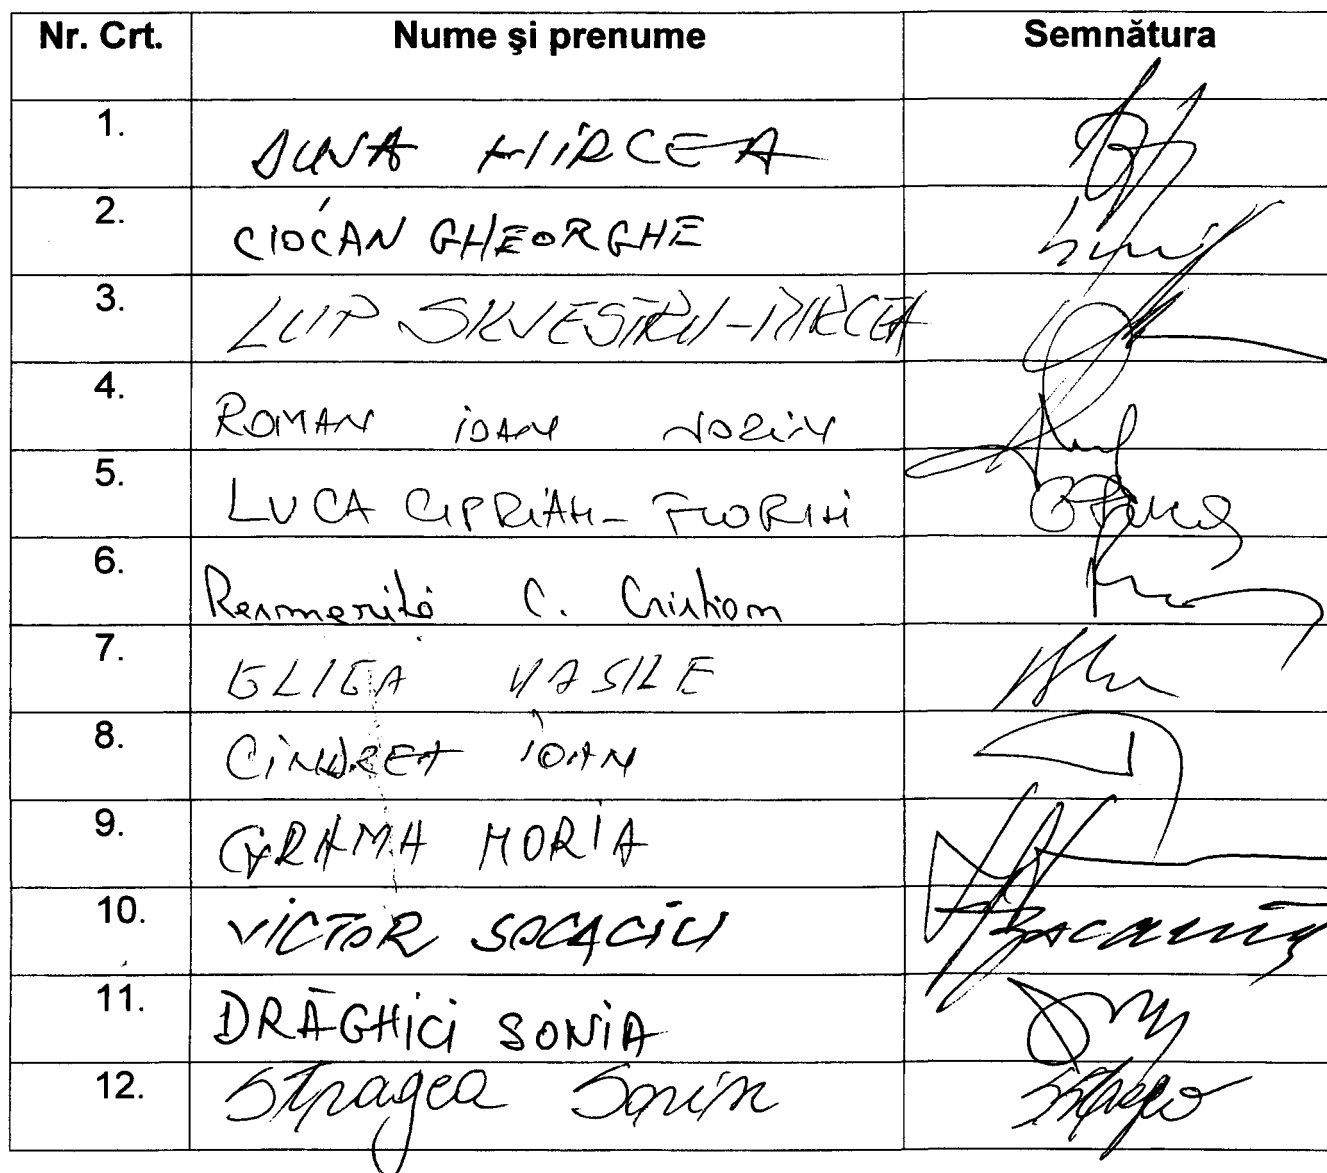 Nr. Crt. Nume şi prenume Semnătura
1. DUNA MIRCEA
2. CIOCAN GHEORGHE
3. LUP SILVESTRU-MIRCEA
4. ROMAN IOAN SORIN
5. LUCA CIPRIAN-FLORIN
6. Resmeriță C. Cristian
7. GLIGA VASILE
8. CINDREA IOAN
9. GRAMA HORIA
10. VICTOR SOCACIU
11. DRĂGHICI SONIA
12. Stragea Sorin